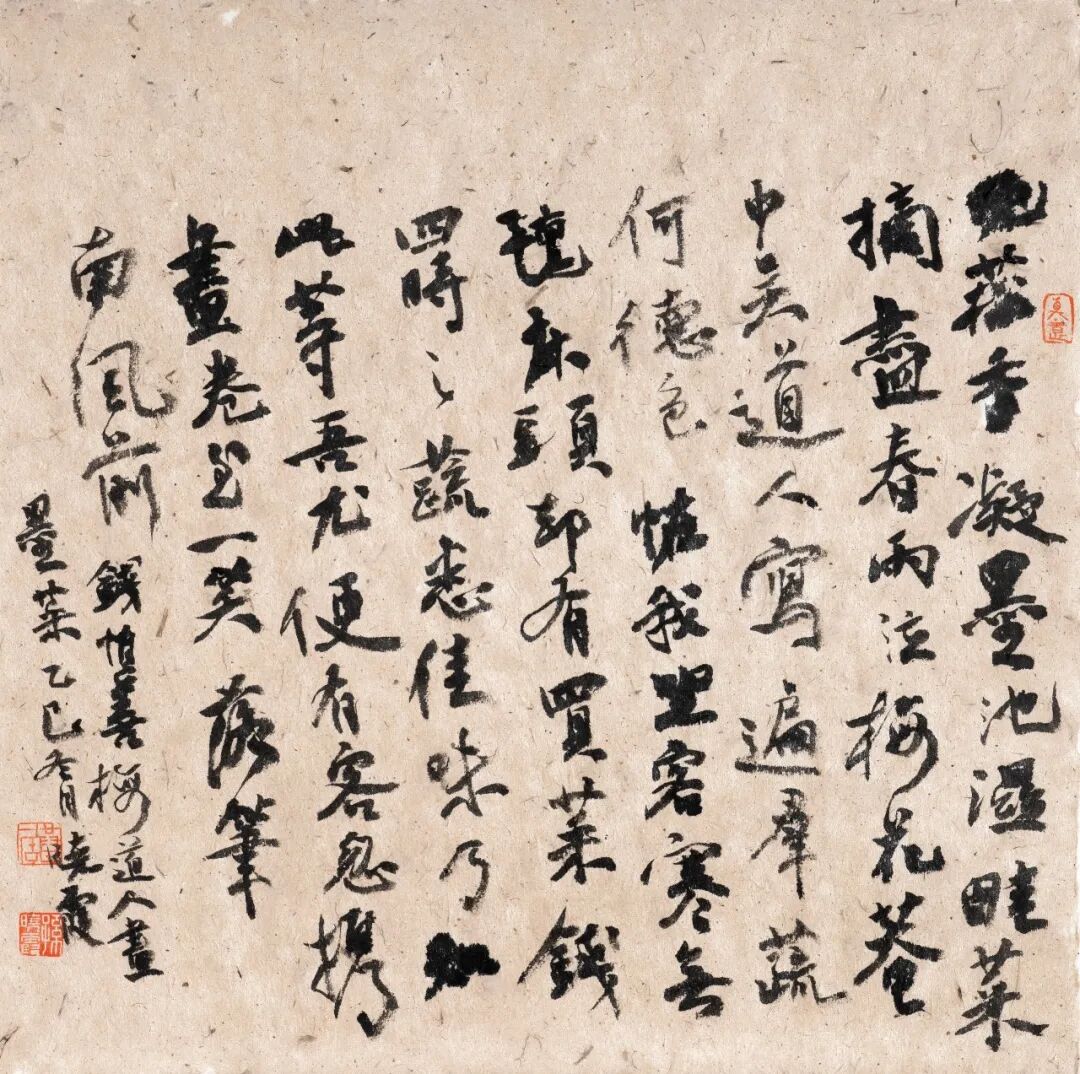 晚菘香凝墨池濕畦菜
摘盡春雨泣梅花菴
中吳道人寫遍羣蔬
何德色怪我坐客寒無
氈床頭却有買菜錢
四時之蔬悉佳味乃知
此等吾尤便有客忽攜
畫卷至一笑落筆
南風前
錢惟善梅道人畫
墨菜乙巳冬月曉霞